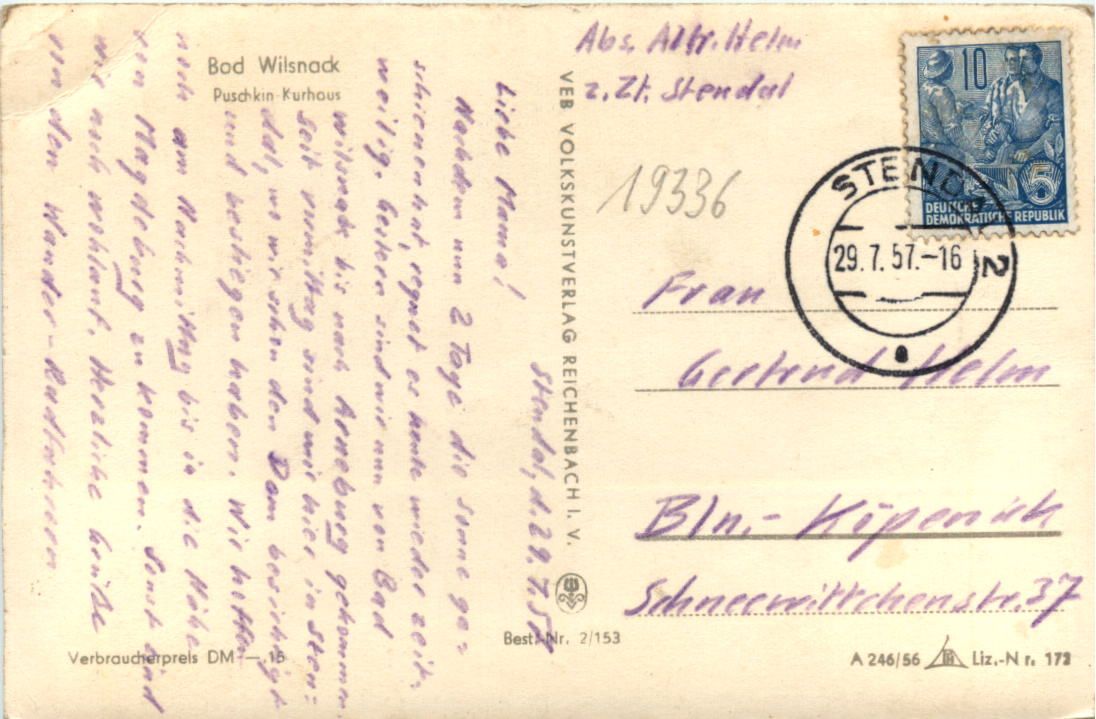 Bad Wilsnack
Puschkin-Kurhaus
Stendal, d. 29.7.57
Liebe Mama!
Nachdem nun 2 Tage die Sonne ge-
schienen hat, regnet es heute wieder zeit-
weilig. Gestern sind wir nun von Bad
Wilsnack bis nach Arneburg gekommen.
Seit vormittag sind wir hier in Sten-
dal, wo wir schon den Dom besichtigt
und bestiegen haben. Wir hoffen
noch am Nachmittag bis in die Nähe
von Magdeburg zu kommen. Sonst sind
wir auch wohlauf. Herzliche Grüße
von den Wander-Radfahrern
Verbraucherpreis DM —,15
VEB VOLKSKUNSTVERLAG REICHENBACH I. V.
Best.-Nr. 2/153
Abs. Helm
z. Zt. Stendal
19336
10
5
DEUTSCHE
DEMOKRATISCHE REPUBLIK
STENDAL 2
29.7.57.-16
a
Frau
Gertrud Helm
Bln.- Köpenick
Schneewittchenstr. 37
A 246/56 Liz.-Nr. 172